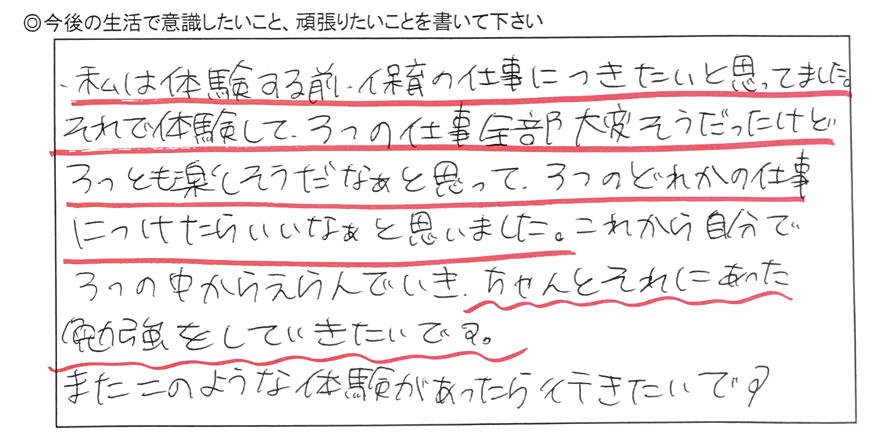 ◎今後の生活で意識したいこと、頑張りたいことを書いて下さい
・私は体験する前、保育の仕事につきたいと思ってました。
それで体験して、3つの仕事全部大変そうだったけど
3つとも楽しそうだなぁと思って、3つのどれかの仕事
につけたらいいなぁと思いました。これから自分で
3つの中からえらんでいき、ちゃんとそれにあった
勉強をしていきたいです。
またこのような体験があったら行きたいです